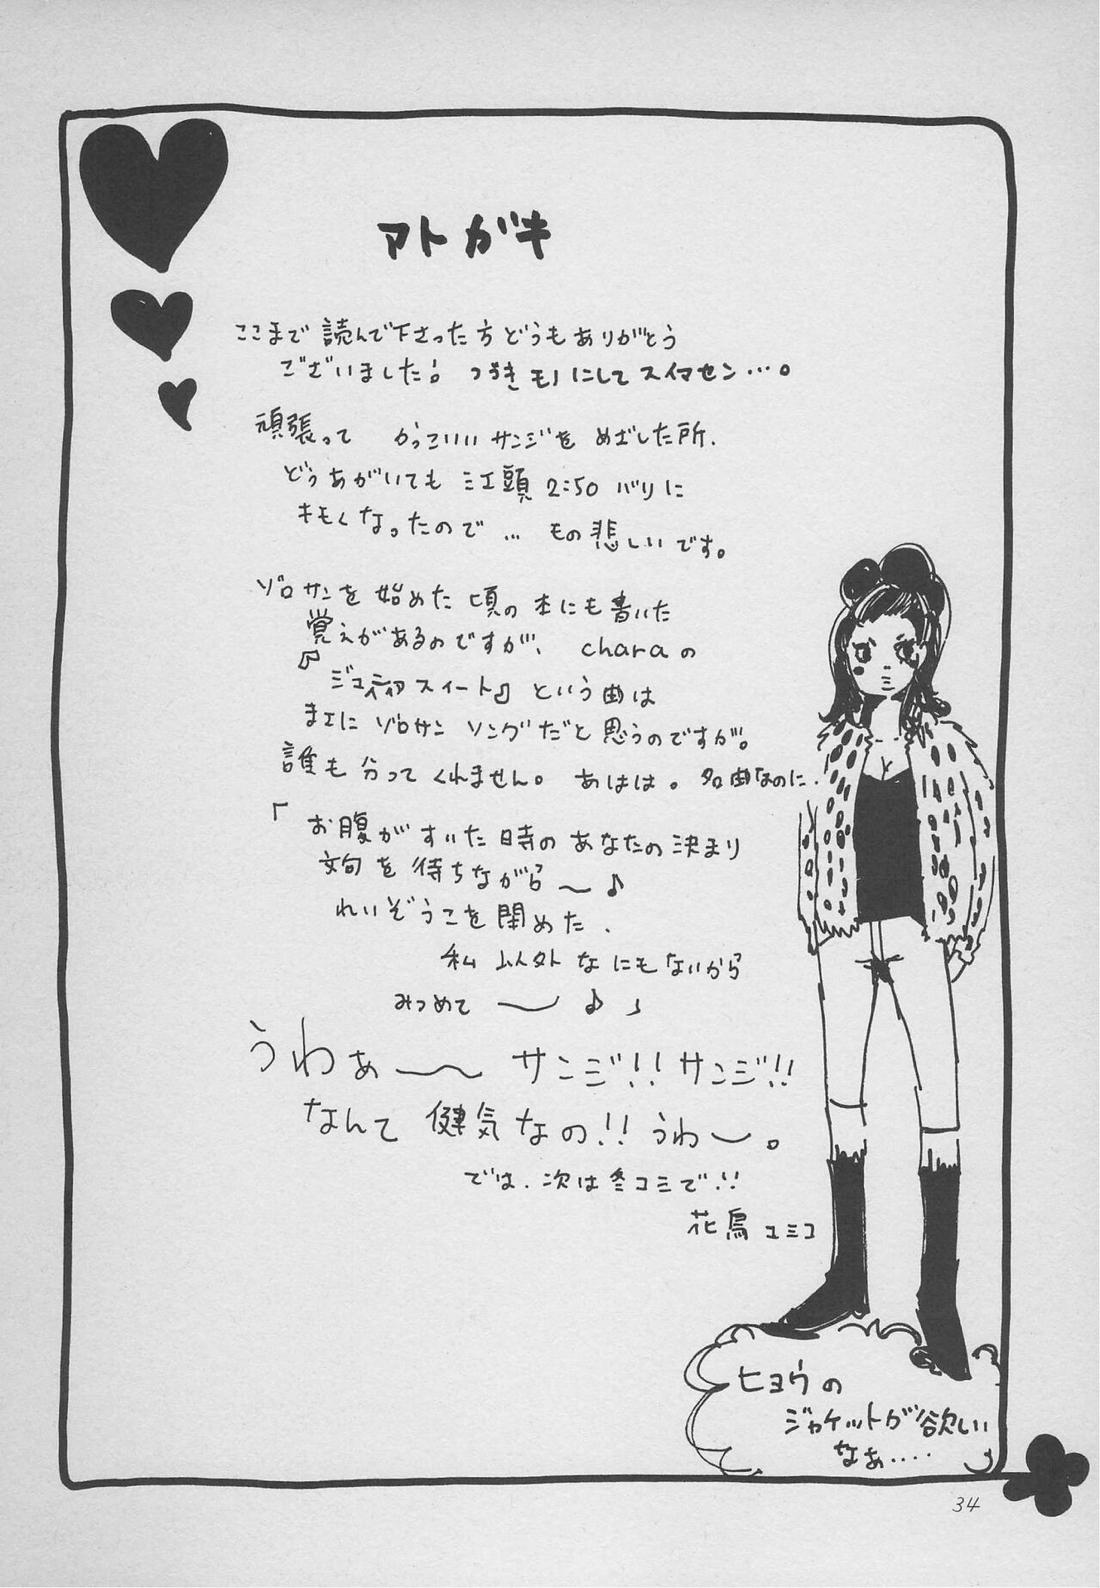 アトガキ
ここまで読んで下さった方どうもありがとう
ございました! つづきモノにしてスイマセン…。
頑張って かっこいいサンジを めざした所、
どうあがいても 江頭2:50バリに
キモくなったので… もの悲しいです。
ゾロサンを始めた頃の本にも書いた
覚えがあるのですが、 charaの
『ジュディア スイート』という曲は
まエに ゾロサン ソングだと思うのですが。
誰も分ってくれません。 あはは。 名曲なのに.
「お腹がすいた時のあなたの決まり
文句を待ちながら〜♪
れいぞうこを閉めた.
私以外なにもないから
みつめて 〜♪」
うわぁ〜〜 サンジ!!サンジ!!
なんて 健気なの!!うわ〜。
では、次は冬コミで!!
花鳥ユミコ
ヒョウの
ジャケットが欲しい
なぁ....
34